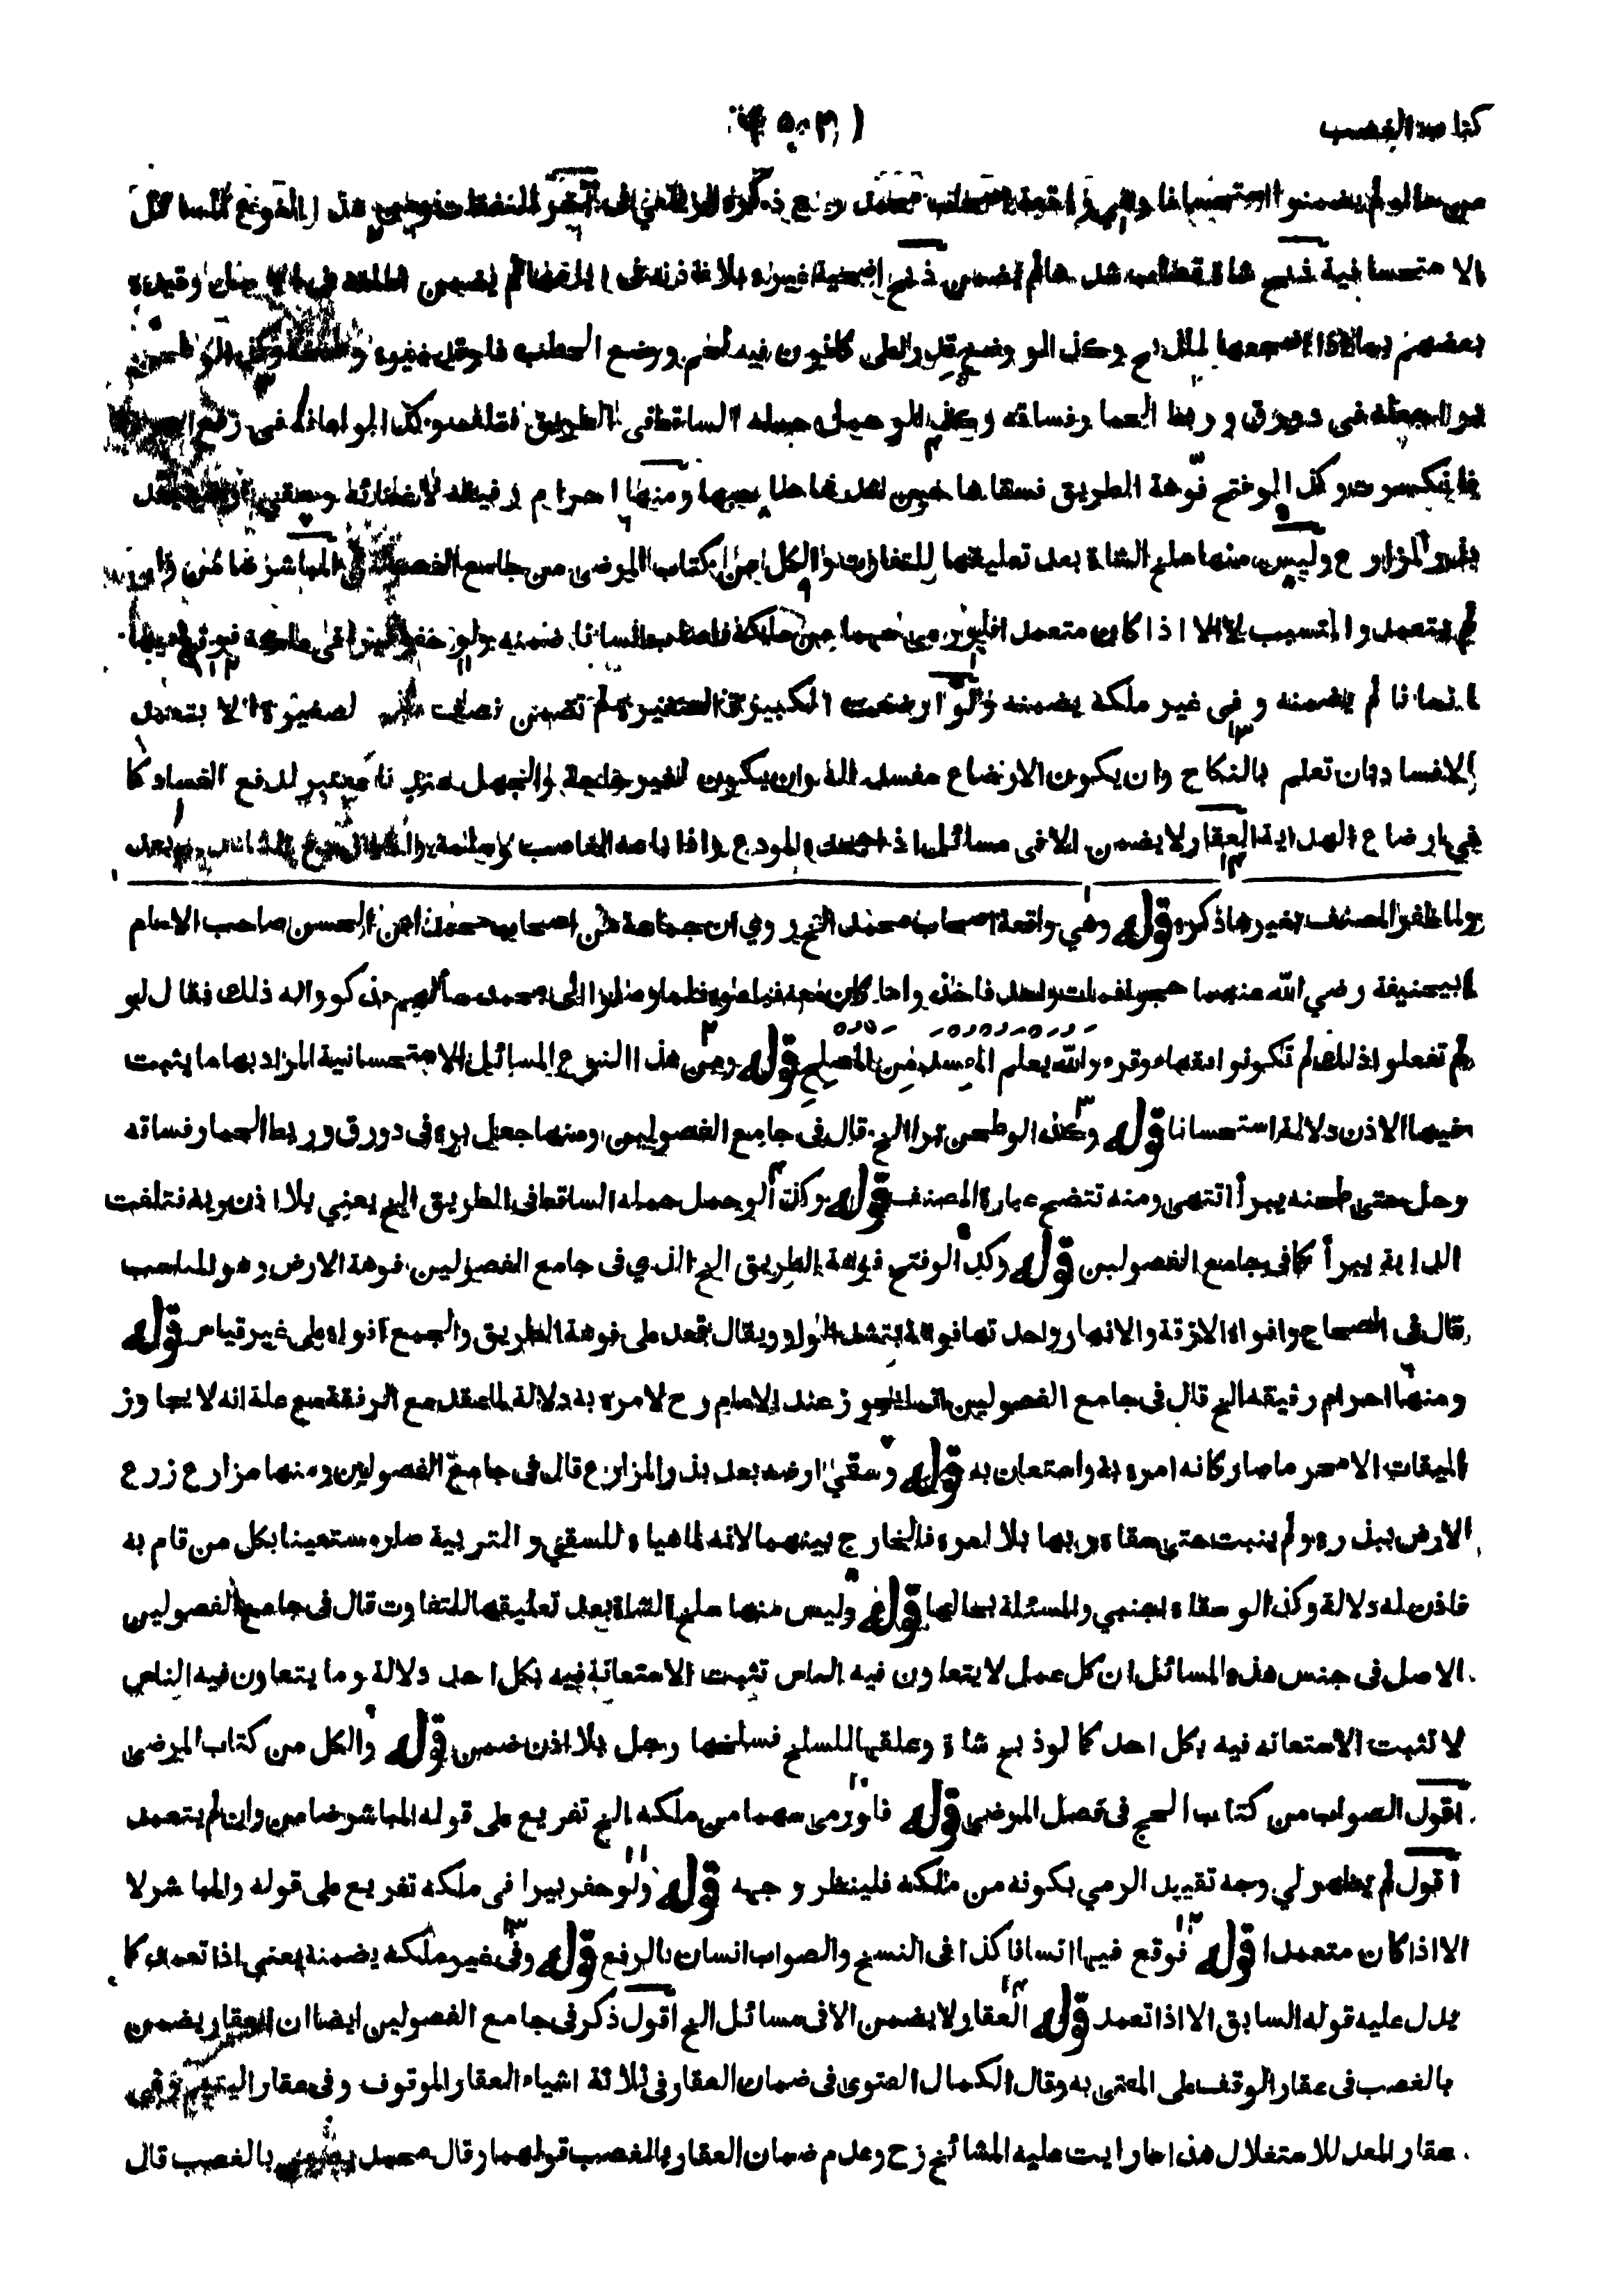 كتاب الغصب
لم يضمنوا استحسانا وهي واقعة اصحاب محمد رح ذكره الزيلعي في آخر النفقات ومن هذا النوع المسائل
الاستحسانية ذبح شاة قصاب شدها لم يضمن ذبح اضحية غيره بلا اذنه في ايامها لم يضمن اطلقه في الاصل وقيده
بعضهم بما اذا اضجعها للذبح وكذا لو وضع قدرا على كانون فيه لحم ووضع الحطب فاوقد غيره وكذا لو طحن
برا جعله في دورق وربط الحمار فساقه وكذا لو حمل حمله الساقط في الطريق فتلف وكذا لو اعانه في رفع
فانكسرت وكذا لو فتح فوهة الطريق فسقاها حين ومنها احرام رفيقه لاغمائه وسقي ارضه بعد
بذر المزارع وليس منها سلخ الشاة بعد تعليقها للتفاوت والكل من كتاب المرضى من جامع الفصولين المباشر ضامن وان
لم يتعمد والمتسبب لا الا اذا كان متعمدا فلو رمى سهما من ملكه فاصاب انسانا ضمنه ولو حفر بيرا في ملكه فوقع فيها
انسانا لم يضمنه وفي غير ملكه يضمنه ولو ارضعت الكبيرة الصغيرة لم تضمن نصف لصغيرة الا بتعمد
الافساد بان تعلم بالنكاح وان يكون الارضاع مفسدا له وان يكون لغير حاجة والجهل عندنا معتبر لدفع الفساد كما
في ارضاع الهداية العقار لا يضمن الا في مسائل اذا جحده المودع واذا باعه الغاصب وسلمه
قوله وهي واقعة اصحاب محمد الخ روي ان جماعة من اصحاب محمد ابن الحسن صاحب الامام
ابيحنيفة رضي الله عنهما حجوا فمات واحد فاخذوا ما كان معه فباعوه فلما وصلوا الى محمد سألهم فذكروا له ذلك فقال لو
لم تفعلوا ذلك لم تكونوا فقهاء وقرء والله يعلم المفسد من المصلح قوله ومن هذا النوع المسائل الاستحسانية المراد بها ما يثبت
فيها الاذن دلالة استحسانا قوله وكذا لو طحن برا الخ قال في جامع الفصولين ومنها جعل بره في دورق وربط الحمار فساقه
رجل حتى طحنه يبرأ انتهى ومنه تتضح عبارة المصنف قوله وكذا لو حمل حمله الساقط في الطريق الخ يعني بلا اذن ربه فتلفت
الدابة يبرأ كما في جامع الفصولين قوله وكذا لو فتح فوهة الطريق الخ الذي في جامع الفصولين فوهة الارض وهو المناسب
قال في الصحاح وافواه الازقة والانهار واحدتها فوهة بتشديد الواو ويقال قعد على فوهة الطريق والجمع افواه على غير قياس قوله
ومنها احرام رفيقه الخ قال في جامع الفصولين انما يجوز عند الامام رح لامره به دلالة لما عقد مع الرفقة مع علمه انه لا يجاوز
الميقات الا محرما صار كانه امره به واستعان به قوله وسقي ارضه بعد بذر المزارع قال في جامع الفصولين ومنها مزارع زرع
الارض ببذره ولم ينبت حتى سقاه ربها بلا امره فالخارج بينهما لانه لما هياه للسقي والتربية صار مستعينا بكل من قام به
فاذن له دلالة وكذا لو سقاه اجنبي والمسئلة بحالها قوله وليس منها سلخ الشاة بعد تعليقها للتفاوت قال في جامع الفصولين
الاصل في جنس هذه المسائل ان كل عمل لا يتفاوت فيه الناس تثبت الاستعانة فيه بكل احد دلالة وما يتفاوت فيه الناس
لا تثبت الاستعانه فيه بكل احد كما لو ذبح شاة وعلقها للسلخ فسلخها رجل بلا اذن ضمن قوله والكل من كتاب المرضى
اقول الصواب من كتاب الحج في فصل المرضى قوله فلو رمى سهما من ملكه الخ تفريع على قوله المباشر ضامن وان لم يتعمد
اقول لم يظهر لي وجه تقييد الرمي بكونه من ملكه فلينظر وجهه قوله ولو حفر بيرا في ملكه تفريع على قوله والمباشر لا
الا اذا كان متعمدا قوله فوقع فيها انسانا كذا في النسخ والصواب انسان بالرفع قوله وفي غير ملكه يضمنه يعني اذا تعمد كما
يدل عليه قوله السابق الا اذا تعمد قوله العقار لا يضمن الا في مسائل الخ اقول ذكر في جامع الفصولين ايضا ان العقار يضمن
بالغصب في عقار الوقف على المفتى به وقال الكمال الفتوى في ضمان العقار في ثلاثة اشياء العقار الموقوف وفي عقار اليتيم وفي
عقار المعد للاستغلال هذا ما رايت عليه المشائخ رح وعدم ضمان العقار بالغصب قولهما وقال محمد يضمن بالغصب قال